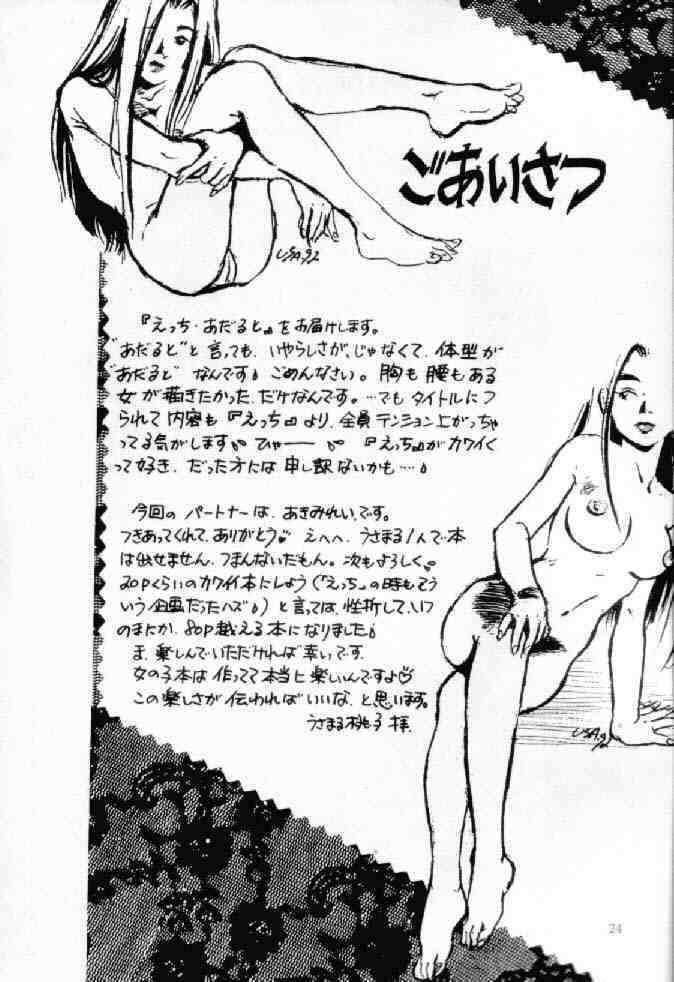 ごあいさつ
USA.92
『えっち・あだると』をお届けします。
"あだると"と言っても、いやらしさが、じゃなくて、体型が
"あだると"なんです♪ごめんなさい。胸も腰もある
女が描きたかった、だけなんです。…でもタイトルにつ
られて内容も『えっち』より、全員テンション上がっちゃ
ってる気がします。ひゃーー。『えっち』がカワイく
って好き、だった方には申し訳ないかも…♪
今回のパートナーは、あきみれい、です。
つきあってくれて、ありがとう♡えへへ、うさまる1人で本
は出せません、つまんないだもん。次もよろしく。
20Pくらいのカワイイ本にしよう(『えっち』の時もそう
いう企画だったハズ♪)と言っては、挫折して、いつ
のまにか、80P越える本になりました♪
ま、楽しんでいただければ幸いです。
女の子本は作ってて本当に楽しいんですよ♡
この楽しさが伝わればいいな、と思います。
うさまる桃子 拝.
USA.92
24